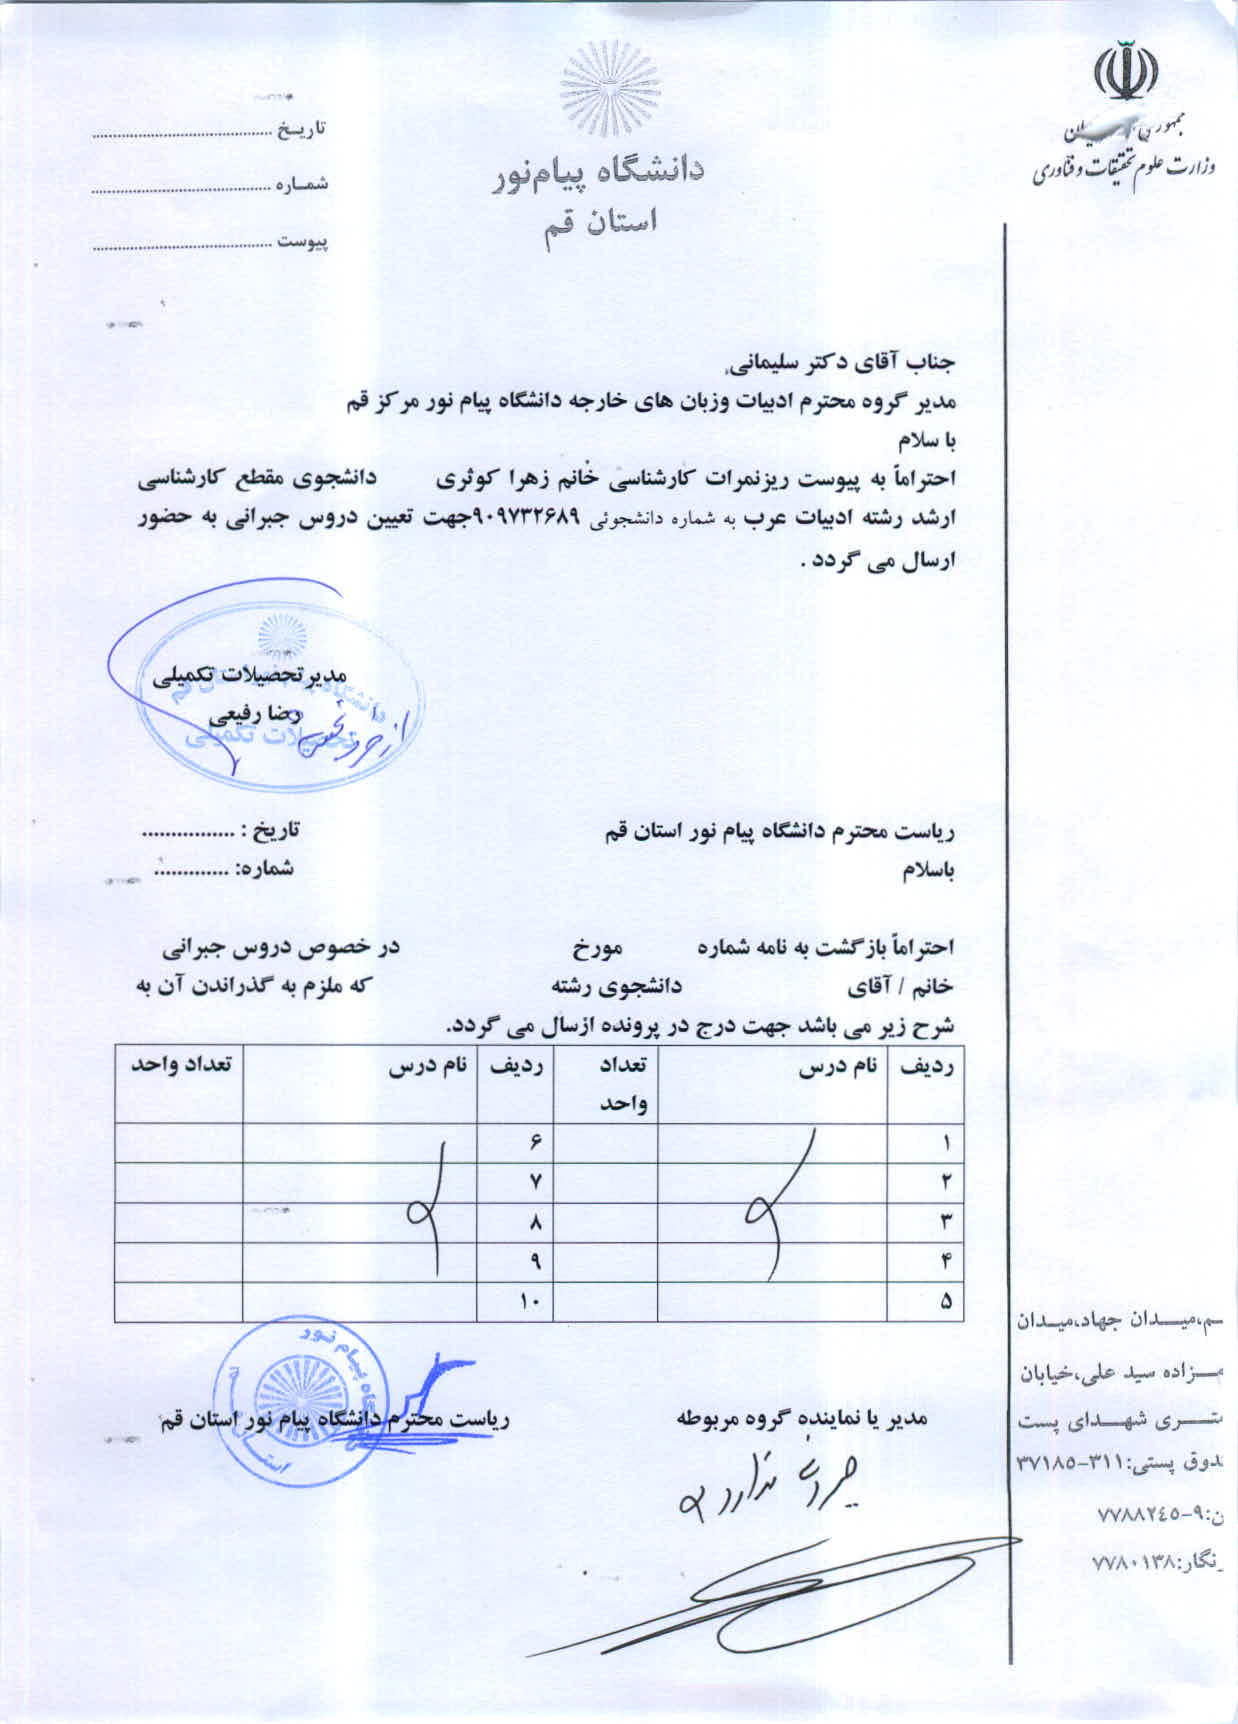 وزارت علوم تحقیقات و فناوری
دانشگاه پیام‌نور
استان قم
تاریـخ ............................................
شمـاره ............................................
پیوست ............................................
جناب آقای دکتر سلیمانی
مدیر گروه محترم ادبیات وزبان های خارجه دانشگاه پیام نور مرکز قم
با سلام
احتراماً به پیوست ریزنمرات کارشناسی خانم زهرا کوثری دانشجوی مقطع کارشناسی
ارشد رشته ادبیات عرب به شماره دانشجوئی ۹۰۹۷۳۲۶۸۹جهت تعیین دروس جبرانی به حضور
ارسال می گردد .
مدیرتحصیلات تکمیلی
رضا رفیعی
دانشگاه پیام نور استان قم
تحصیلات تکمیلی
ریاست محترم دانشگاه پیام نور استان قم
تاریخ : ................
باسلام
شماره: .............
احتراماً بازگشت به نامه شماره مورخ در خصوص دروس جبرانی
خانم / آقای دانشجوی رشته که ملزم به گذراندن آن به
شرح زیر می باشد جهت درج در پرونده ازسال می گردد.
ردیف نام درس تعداد واحد ردیف نام درس تعداد واحد
۱ ۶
۲ ۷
۳ ۸
۴ ۹
۵ ۱۰
مدیر یا نماینده گروه مربوطه
ریاست محترم دانشگاه پیام نور استان قم
ندارد
ـم،میــدان جهاد،میـدان
ـزاده سید علی،خیابان
ـتـری شهـدای پست
ـدوق پستی:۳۱۱-۳۷۱۸۵
ن:۹-۷۷۸۸۲٤٥
ـنگار:۷۷۸۰۱۳۸